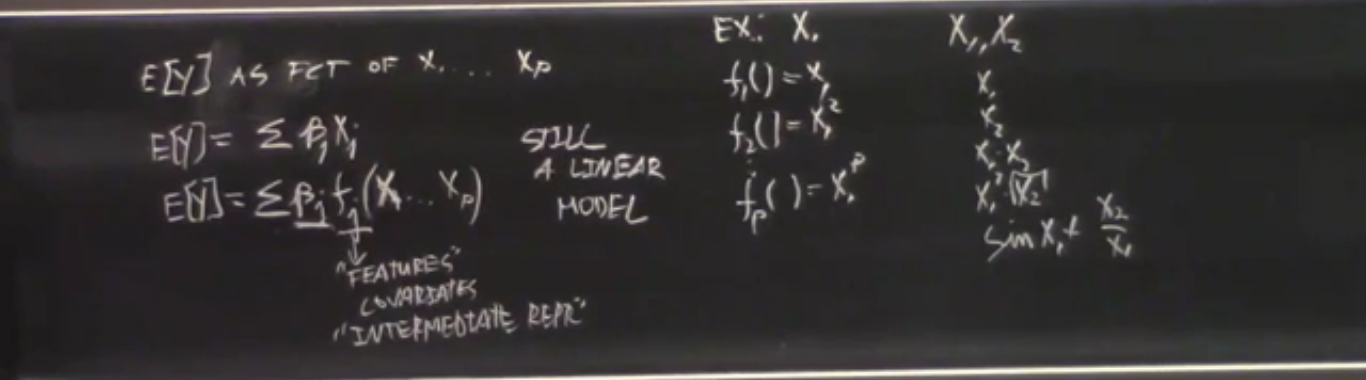 E[Y] AS FCT OF X₁ .... Xₚ
E[Y] = Σ βⱼ Xⱼ
E[Y] = Σ βⱼ fⱼ (X₁ ... Xₚ)
"FEATURES"
COVARIATES
"INTERMEDIATE REPR"
STILL
A LINEAR
MODEL
EX.: X₁
f₁() = X₁
f₂() = X₁²
⋮
fₚ( ) = X₁ᵖ
X₁, X₂
X₁
X₂
X₁·X₂
X₁²·√X₂
sin X₁ + X₂/X₁